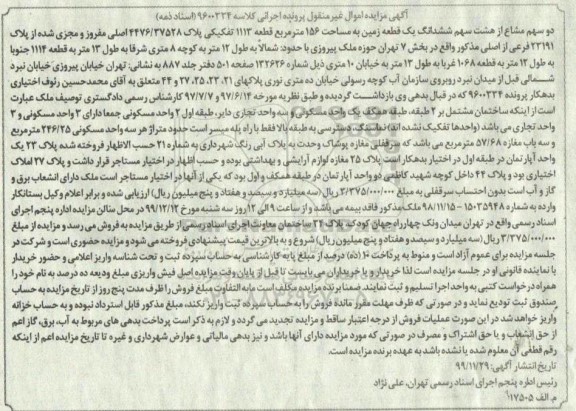 آگهی مزایده اموال غیرمنقول پرونده اجرائی کلاسه ۹۶۰۰۲۳۴ (اسناد ذمه)
دو سهم مشاع از هشت سهم ششدانگ یک قطعه زمین به مساحت ۱۵۶ مترمربع قطعه ۱۱۱۳ تفکیکی پلاک ۴۴۷۶/۳۷۵۲۸ اصلی مفروز و مجزی شده از پلاک
۲۲۱۹۱ فرعی از اصلی مذکور واقع در بخش ۷ تهران حوزه ملک پیروزی با حدود: شمالاً به طول ۱۲ متر به کوچه ۸ متری شرقا به طول ۱۳ متر به قطعه ۱۱۱۴ جنوبا
به طول ۱۲ متر به قطعه ۱۰۶۸ غربا به طول ۱۳ متر به خیابان ۱۰ متری ذیل شماره ۱۳۲۶۲۶ صفحه ۵۰۱ دفتر جلد ۸۸۷ به نشانی: تهران خیابان پیروزی خیابان نبرد
شمالی قبل از میدان نبرد روبروی سازمان آب کوچه رسولی خیابان ده متری نوری پلاکهای ۲۱، ۲۳، ۲۵، ۲۷ و ۴۴ متعلق به آقای محمدحسین رئوف اختیاری
بدهکار پرونده ۹۶۰۰۲۳۴ که در قبال بدهی وی بازداشت گردیده و طبق نظریه مورخه ۹۷/۶/۱۴ و ۹۷/۷/۷ کارشناس رسمی دادگستری توصیف ملک عبارت
است از اینکه ساختمان مشتمل بر ۲ طبقه، طبقه همکف یک واحد مسکونی و سه واحد تجاری دایر، طبقه اول ۲ واحد مسکونی جمعا دارای ۳ واحد مسکونی و ۳
واحد تجاری می باشد (واحدها تفکیک نشده اند) نماسنگ، دسترسی به طبقه بالا فقط با راه پله میسر است حدود متراژ هر سه واحد مسکونی ۲۴۶/۲۵ مترمربع
و سه باب مغازه ۵۷/۶۸ مترمربع می باشد که سرقفلی مغازه پوشاک وحدت به پلاک آبی رنگ شهرداری به شماره ۲۱ حسب الاظهار فروخته شده پلاک ۲۳ یک
واحد آپارتمان در طبقه اول در اختیار بدهکار است پلاک ۲۵ مغازه لوازم آرایشی و بهداشتی بوده و حسب اظهار در اختیار مستاجر قرار داشت و پلاک ۲۷ املاک
اختیاری بود و پلاک ۴۴ داخل کوچه شهید کاظمی دو واحد آپارتمان در طبقه همکف و اول بود که یکی از آنها در اختیار مستاجر است ملک دارای انشعاب برق و
گاز و آب است بدون احتساب سرقفلی به مبلغ ۳/۳۷۵/۰۰۰/۰۰۰ ریال (سه میلیارد و سیصد و هفتاد و پنج میلیون ریال) ارزیابی شده و برابر اعلام وکیل بستانکار
وارده به شماره ۱۵۰۳۵۹۴۸ - ۹۸/۱۱/۱۵ ملک مذکور فاقد بیمه می باشد و از ساعت ۹ الی ۱۲ روز سه شنبه مورخ ۹۹/۱۲/۱۲ در محل سالن مزایده اداره پنجم اجرای
اسناد رسمی واقع در تهران میدان ونک چهارراه جهان کودک پلاک ۲۴ ساختمان معاونت اجرای اسناد رسمی از طریق مزایده به فروش می رسد و مزایده از مبلغ
۳/۳۷۵/۰۰۰/۰۰۰ ریال (سه میلیارد و سیصد و هفتاد و پنج میلیون ریال) شروع و به بالاترین قیمت پیشنهادی فروخته می شود و مزایده حضوری است و شرکت در
جلسه مزایده برای عموم آزاد است و منوط به پرداخت ۱۰٪ (ده) درصد از مبلغ پایه کارشناسی به حساب سپرده ثبت و تحت شناسه واریز اعلامی و حضور خریدار
یا نماینده قانونی او در جلسه مزایده است لذا خریدار یا خریداران می بایست تا قبل از پایان وقت مزایده اصل فیش واریزی مبلغ ودیعه ده درصد به نام خود را
همراه درخواست کتبی به واحد اجرا تسلیم و ثبت نمایند ضمنا برنده مزایده مکلف است مابه التفاوت مبلغ فروش را ظرف مدت پنج روز از تاریخ مزایده به حساب
صندوق ثبت تودیع نماید و در صورتی که ظرف مهلت مقرر مانده فروش را به حساب سپرده ثبت واریز نکند، مبلغ مذکور قابل استرداد نبوده و به حساب خزانه
واریز خواهد شد در این صورت عملیات فروش از درجه اعتبار ساقط و مزایده تجدید می گردد و لازم به ذکر است پرداخت بدهی های مربوط به آب، برق، گاز اعم
از حق انشعاب و یا حق اشتراک و مصرف در صورتی که مورد مزایده دارای آنها باشد و نیز بدهی مالیاتی و عوارض شهرداری و غیره تا تاریخ مزایده اعم از اینکه
رقم قطعی آن معلوم شده یا نشده باشد به عهده برنده مزایده است.
تاریخ انتشار آگهی: ۹۹/۱۱/۲۹
رئیس اداره پنجم اجرای اسناد رسمی تهران، علی نژاد
م.الف ۱۱۷۵۰۵